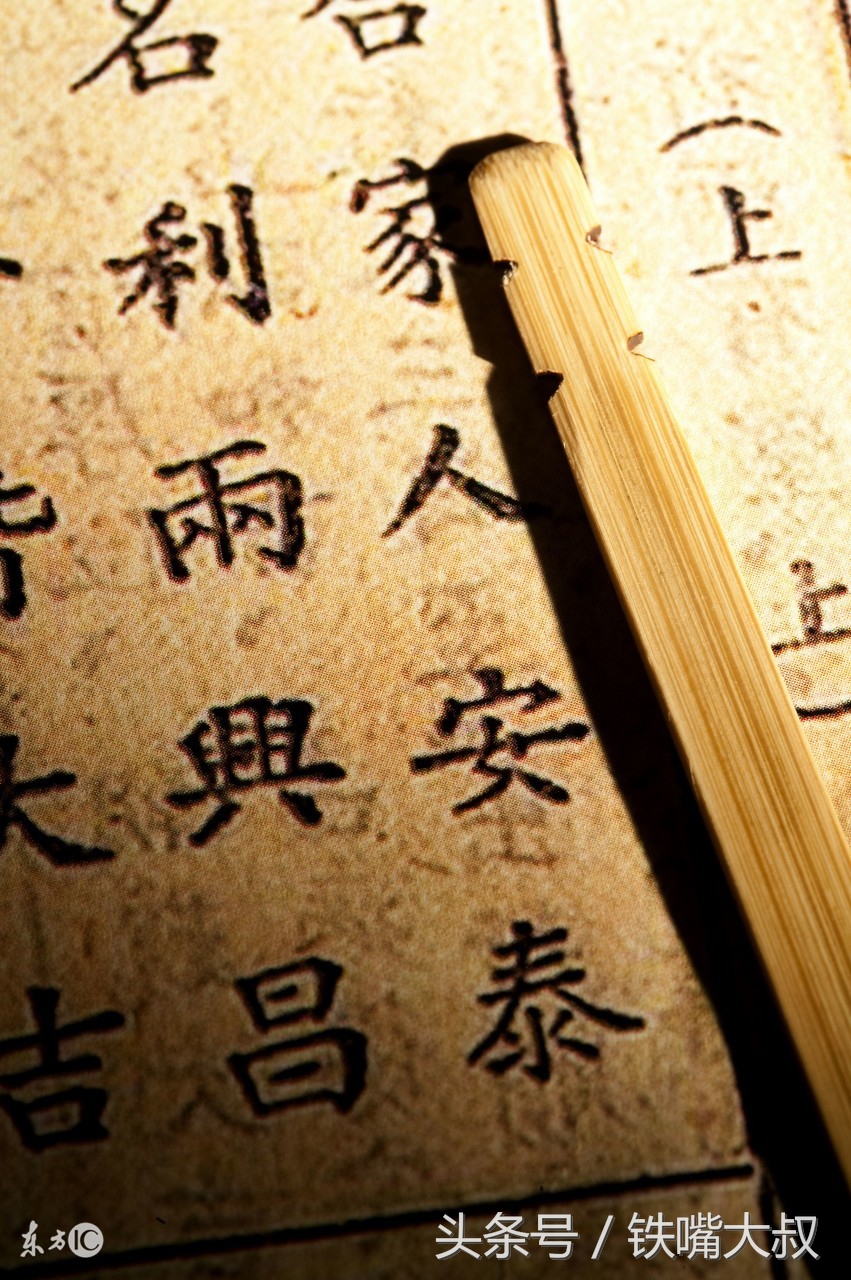 （上上）
合家人安泰
名利兩興昌
皆大吉
东方IC
头条号 / 铁嘴大叔